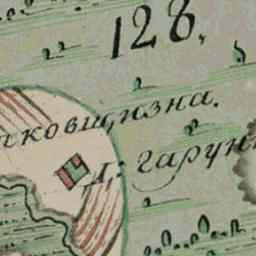 128.
ковщизна.
Д: гарун